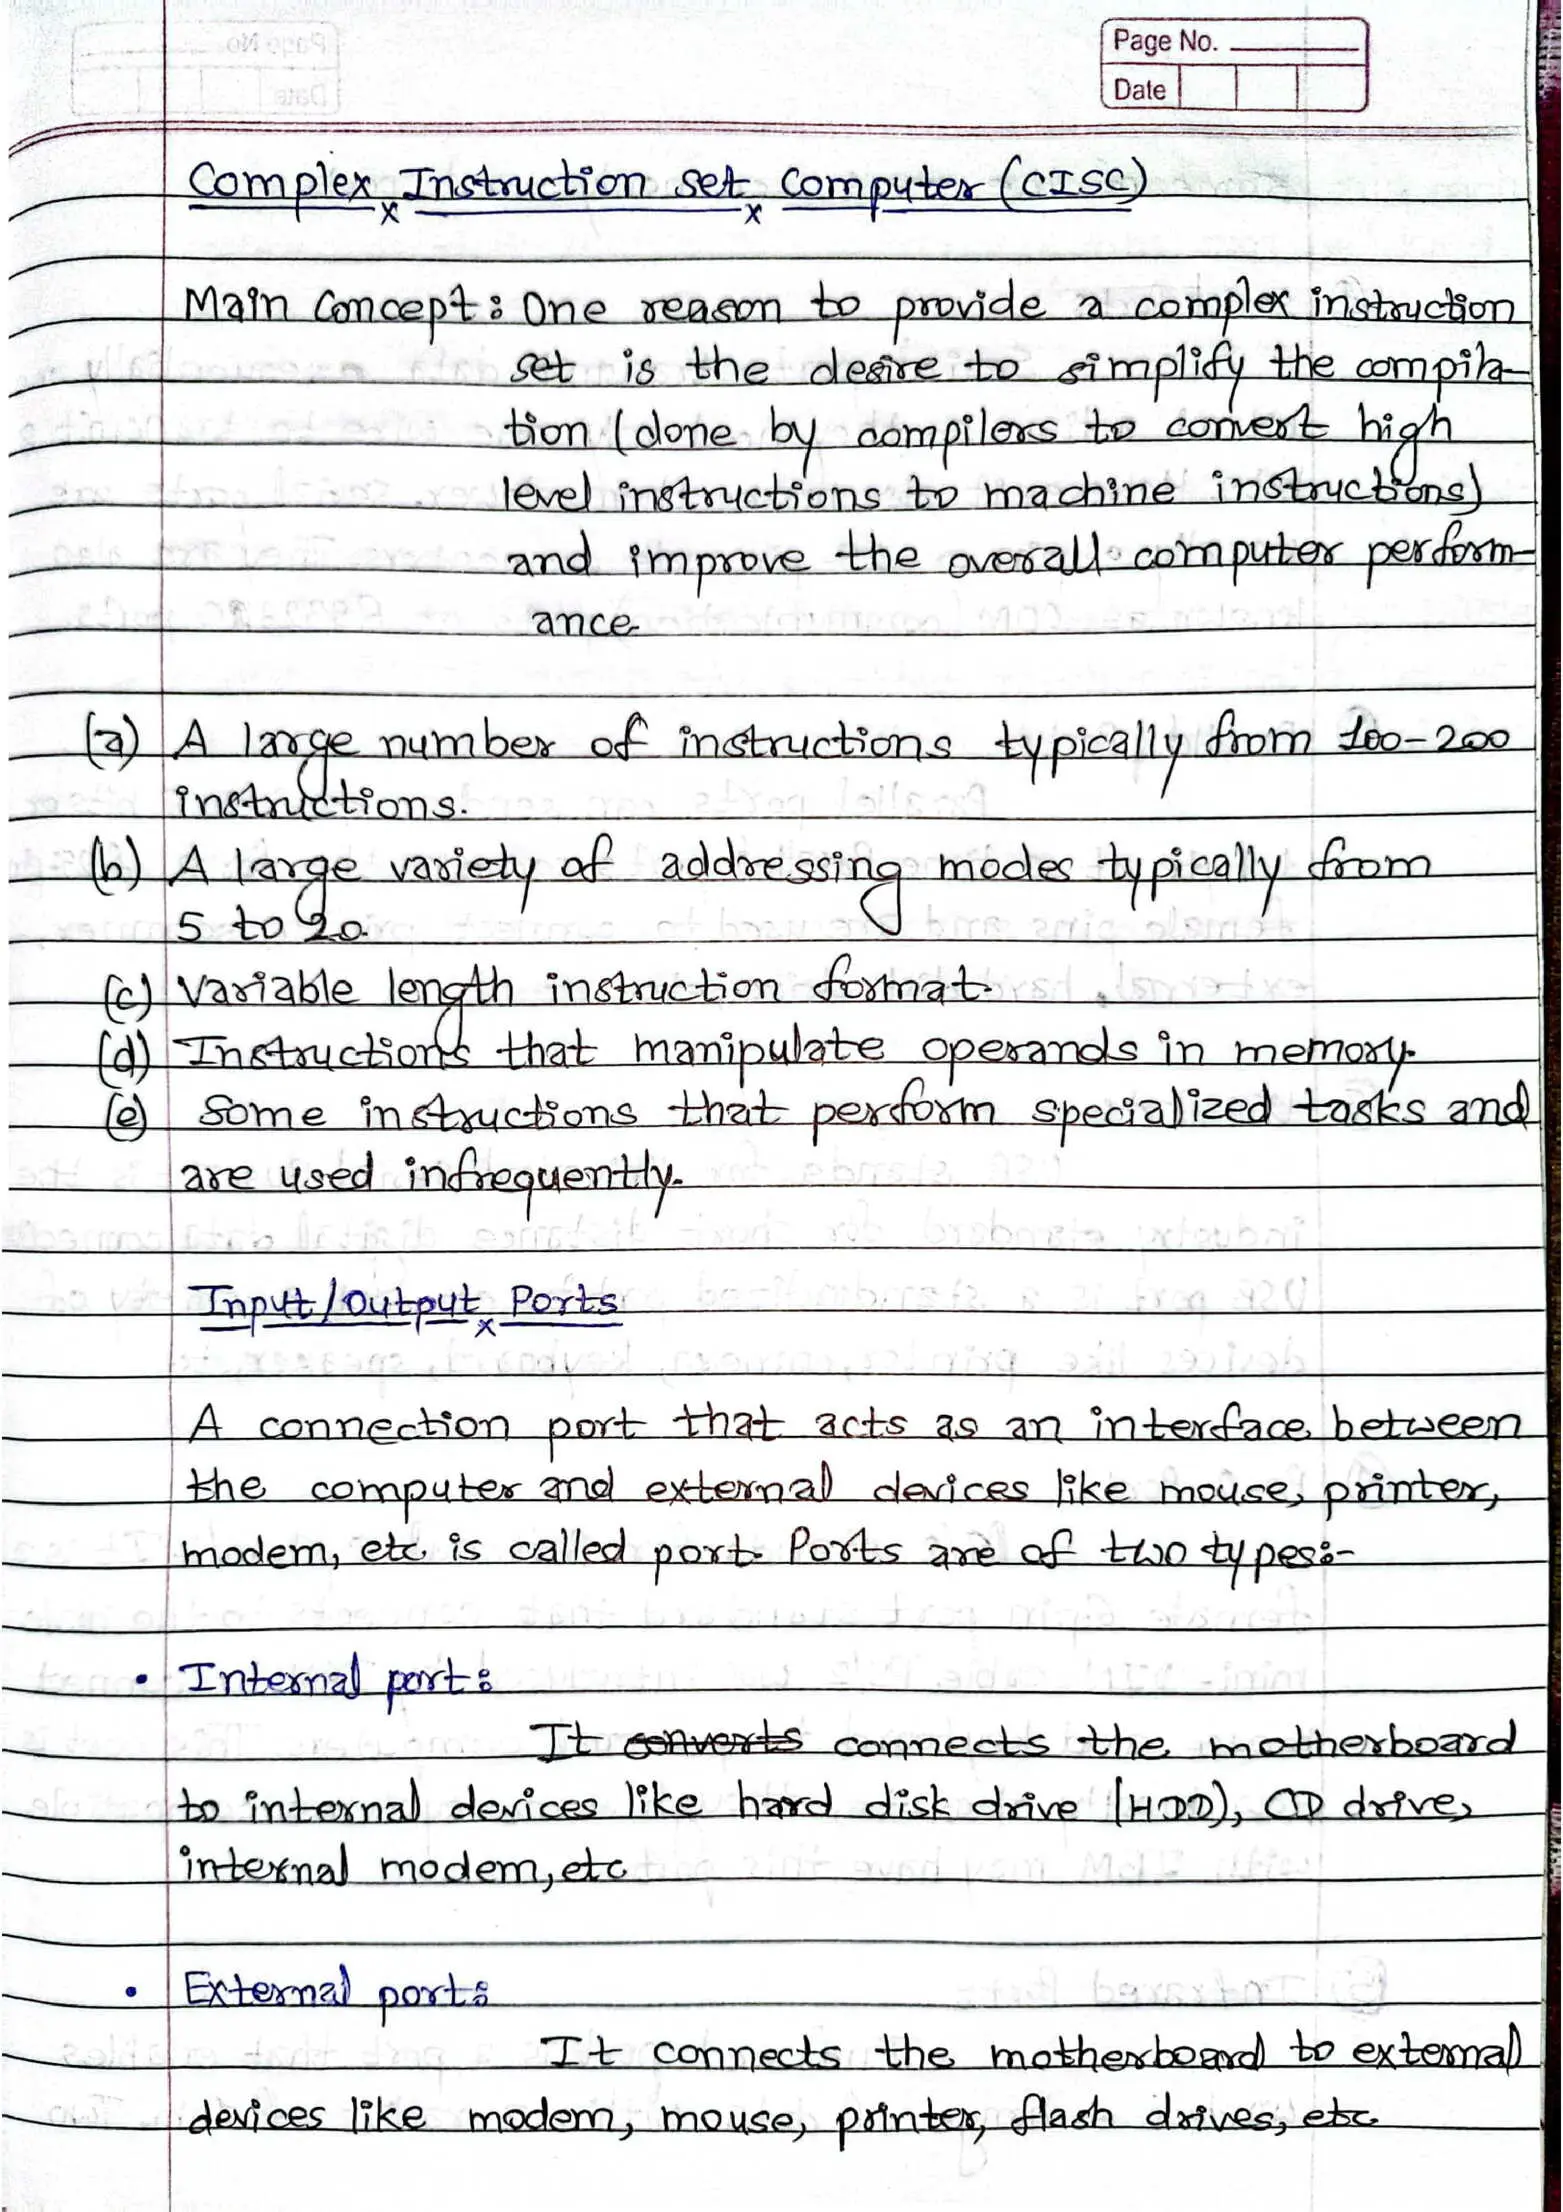 Page No.
Date
Complex Instruction set Computer (CISC)
Main Concept: One reason to provide a complex instruction
set is the desire to simplify the compila-
tion (done by compilers to convert high
level instructions to machine instructions)
and improve the overall computer perform-
ance.
(a) A large number of instructions typically from 100-200
instructions.
(b) A large variety of addressing modes typically from
5 to 20.
(c) Variable length instruction format.
(d) Instructions that manipulate operands in memory.
(e) Some instructions that perform specialized tasks and
are used infrequently.
Input/Output Ports
A connection port that acts as an interface between
the computer and external devices like mouse, printer,
modem, etc is called port. Ports are of two types:-
• Internal port:
It converts connects the motherboard
to internal devices like hard disk drive (HDD), CD drive,
internal modem, etc
• External port:
It connects the motherboard to external
devices like modem, mouse, printer, flash drives, etc